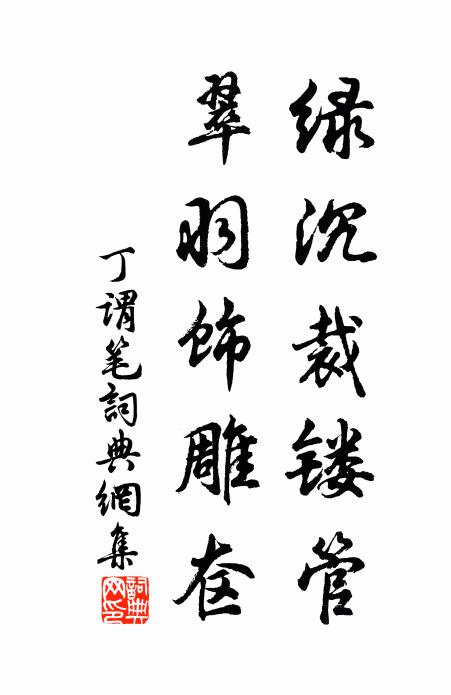 绿沉裁镂管
翠羽饰雕奁
丁谓笔詞典網集
詞典网印